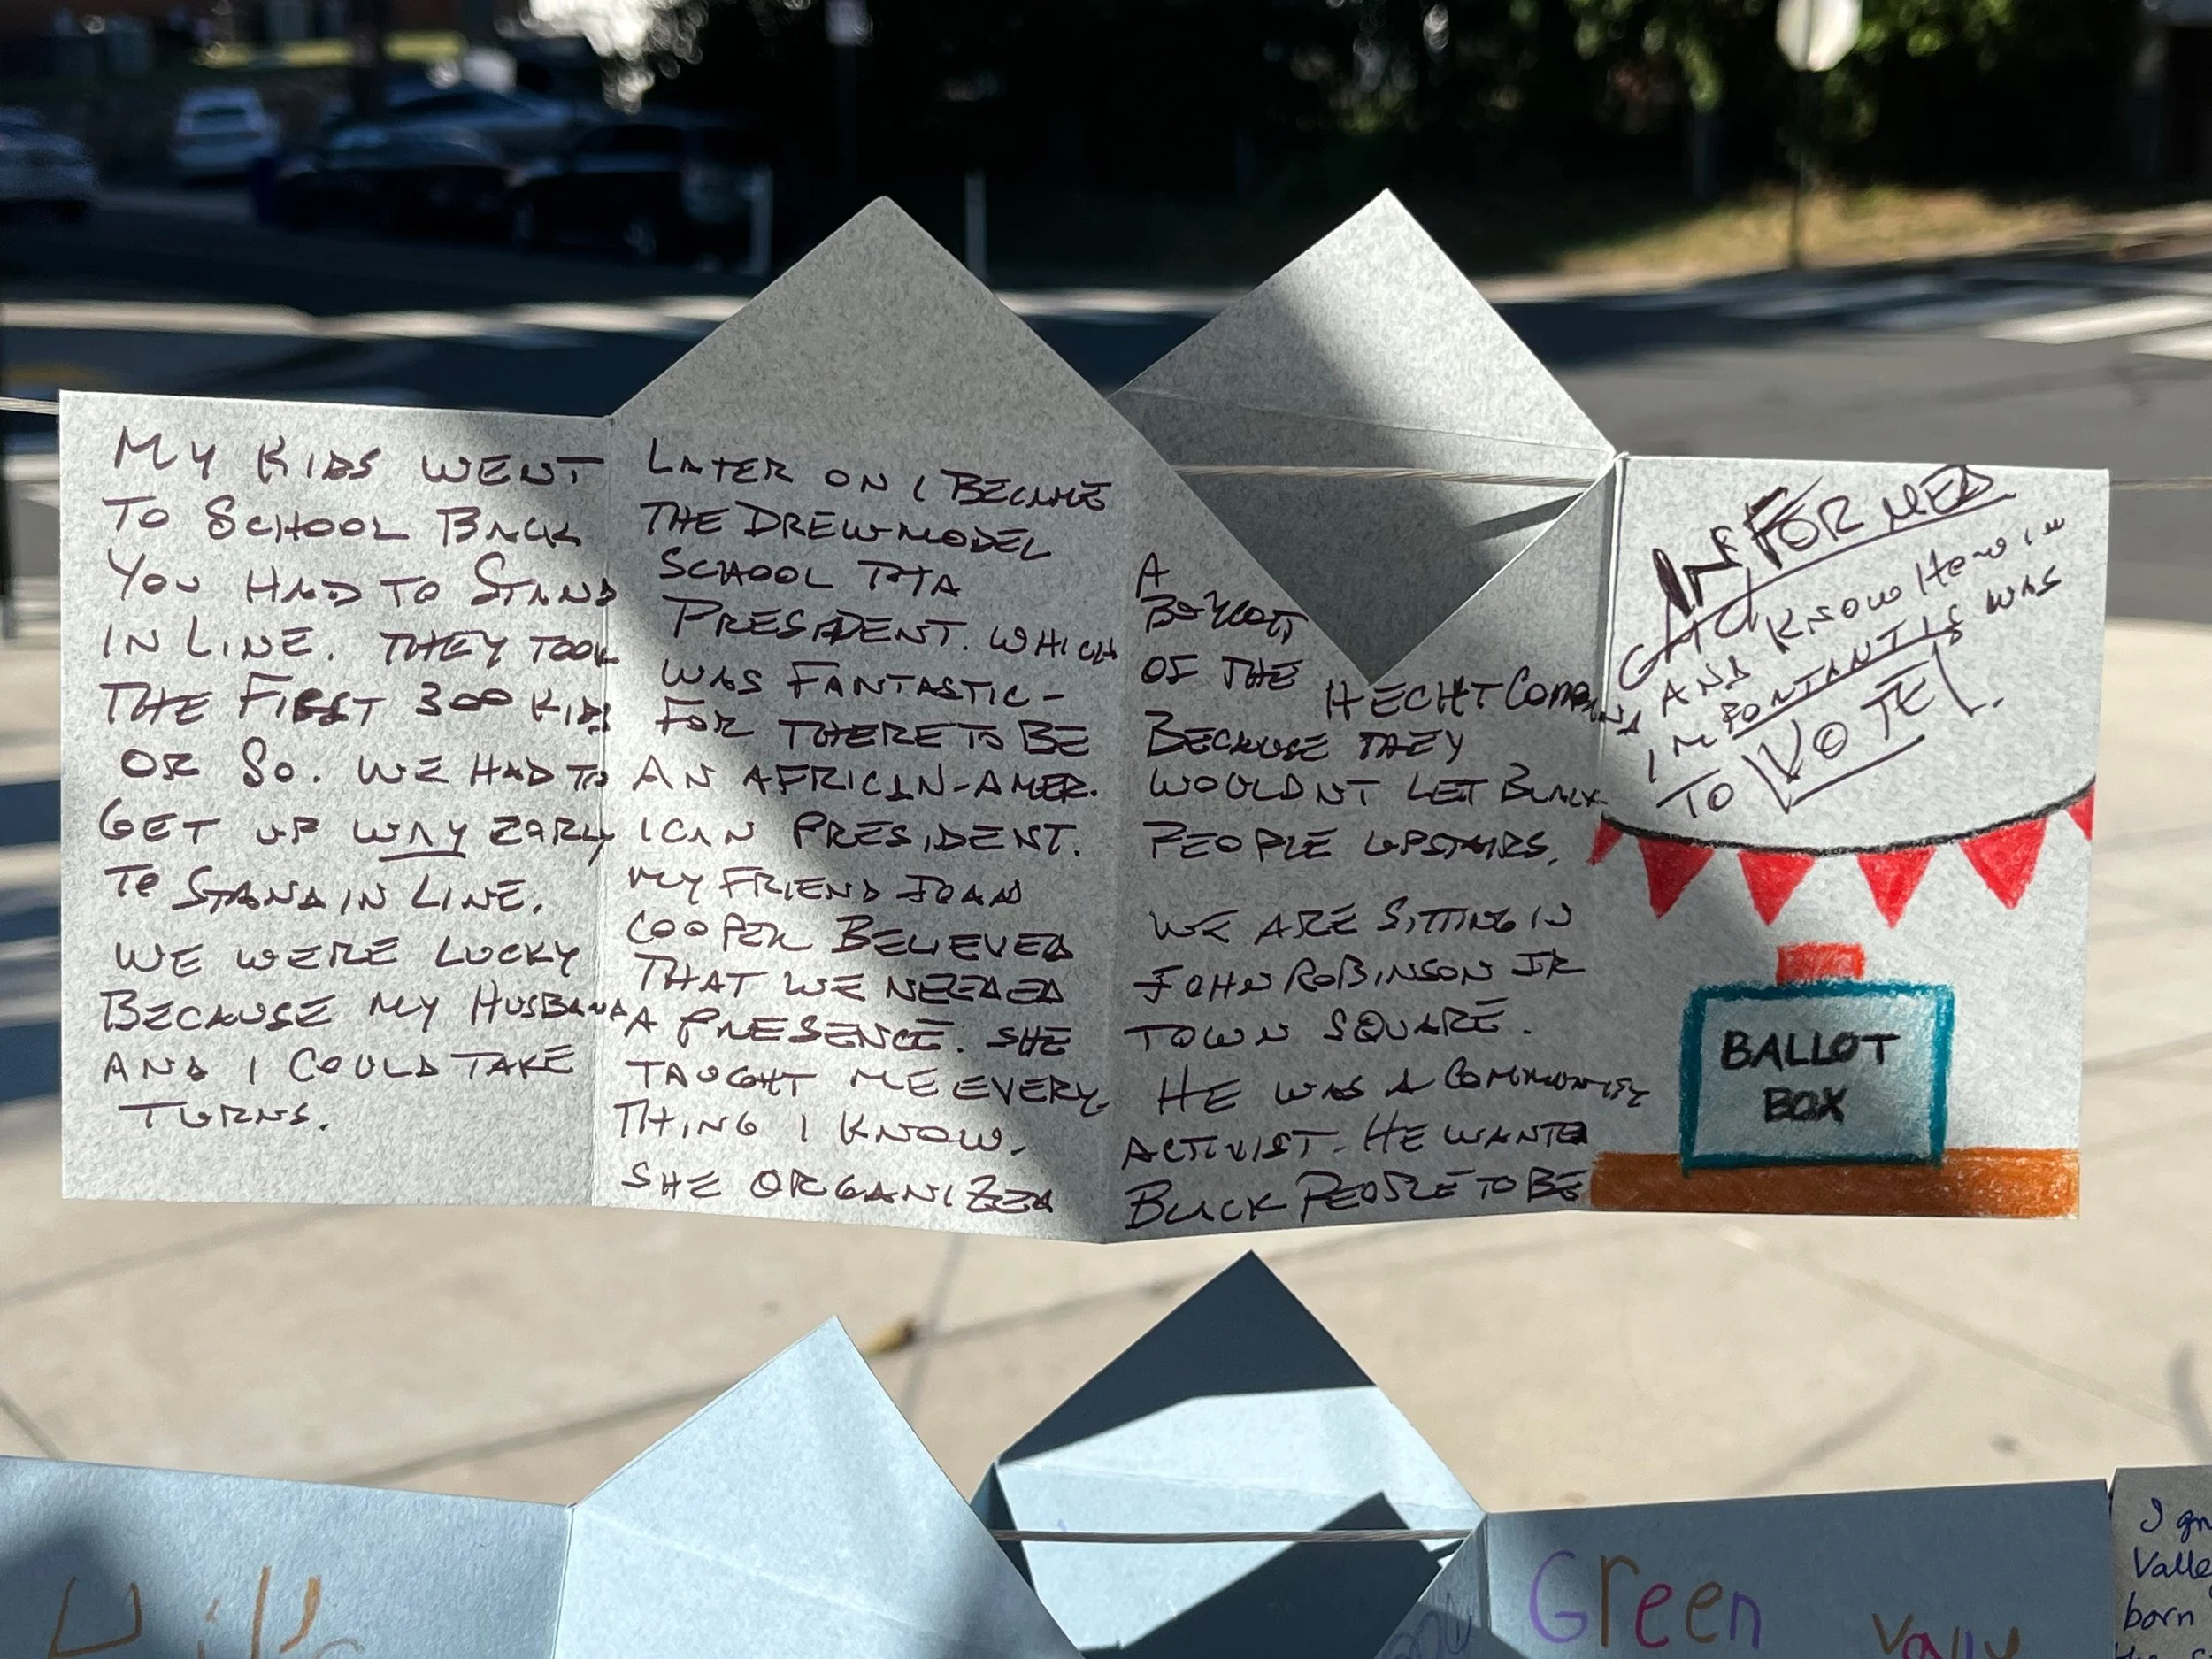 MY KIDS WENT
TO SCHOOL BACK
YOU HAD TO STAND
IN LINE. THEY TOOK
THE FIRST 300 KIDS
OR SO. WE HAD TO
GET UP WAY EARLY
TO STAND IN LINE.
WE WERE LUCKY
BECAUSE MY HUSBAND
AND I COULD TAKE
TURNS.
LATER ON I BECAME
THE DREW MODEL
SCHOOL PTA
PRESIDENT. WHICH
WAS FANTASTIC-
FOR THERE TO BE
AN AFRICAN-AMER.
ICAN PRESIDENT.
MY FRIEND JOAN
COOPER BELIEVED
THAT WE NEEDED
A PRESENCE. SHE
TAUGHT ME EVERY-
THING I KNOW.
SHE ORGANIZED
A
BOYCOTT
OF THE
HECHT COMPANY
BECAUSE THEY
WOULDNT LET BLACK
PEOPLE UPSTAIRS.
WE ARE SITTING IN
JOHN ROBINSON JR
TOWN SQUARE.
HE WAS A COMMUNITY
ACTIVIST. HE WANTED
BLACK PEOPLE TO BE
INFORMED
AND KNOW HOW
IMPORTANT IS WAS
TO VOTE!
BALLOT
BOX
Green Vally
I
Valle
born